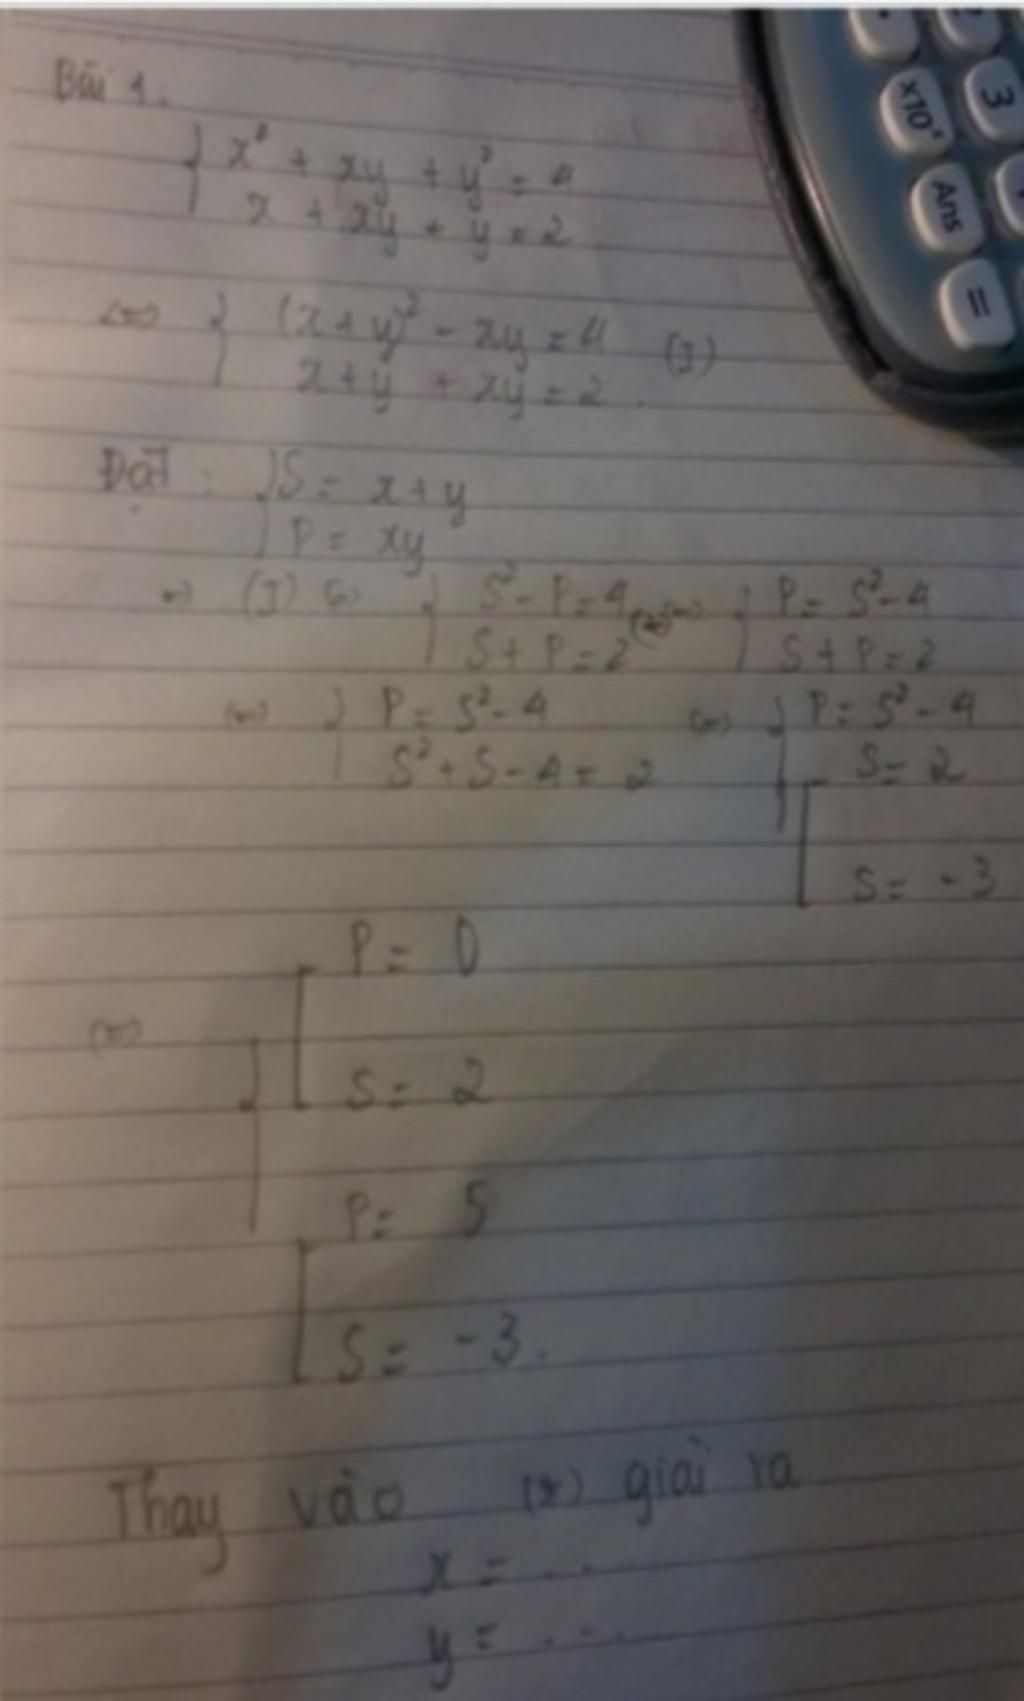 Bài 1.
x² + xy + y² = 4
x + xy + y = 2
<=> (x+y)² - xy = 4 (I)
x+y + xy = 2.
Đặt: S = x+y
P = xy
=> (I) <=> S² - P = 4 (*) <=> P = S² - 4
S + P = 2 S + P = 2
<=> P = S² - 4 <=> P = S² - 4
S² + S - 4 = 2 S = 2
S = -3
P = 0
<=>
S = 2
P = 5
S = -3.
Thay vào (*) giải ra
x = ...
y = ....
x10ˣ
3
Ans
=